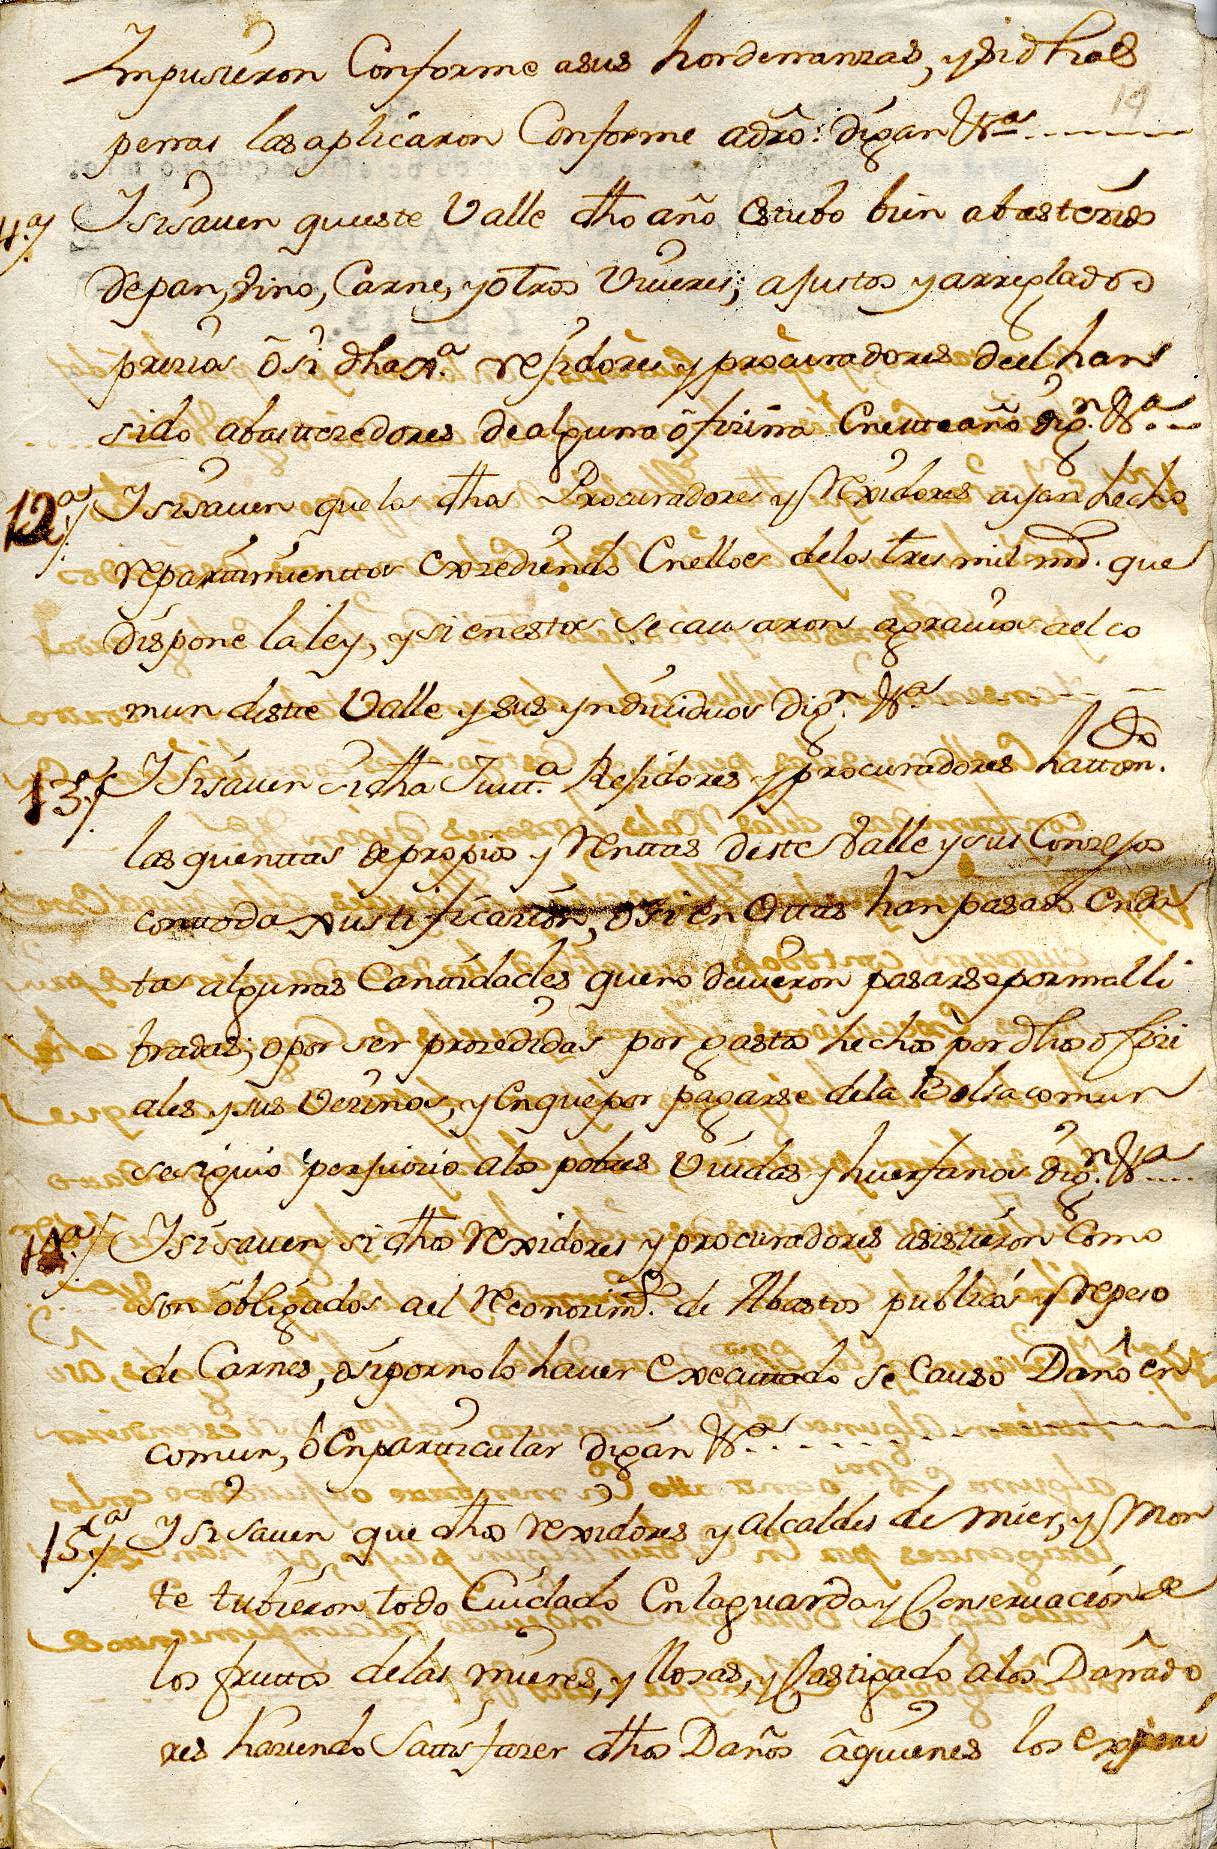 Impusieron Conforme asus hordenanzas, y si dhas
19
penas las aplicaron Conforme adro: digan &a
4.a/ Ysisaven queeste Valle dho año estubo bien abastezido
depan, vino, Carne, y otros viveres; ajustos y arreglados
prezios ô si dha rexidores y procuradores deel han
sido abastezedores dealguna ôfizina Enesteaño dign. &a
12a/ Ysisaven quelos dhos Procuradores y Rexidores ayan hecho
repartimienttos exzediendo Enellos delos tres mil md. que
dispone la ley, y si enestos se causaron agravios a el co
mun deste Valle y sus yndividuos Dign. &a
13a/ Ysisaven si dha Justt.a Rexidores y procuradores hatton.do
las quenttas de propios y Renttas deste Valle y sus Conzejos
contoda xustificazion, ô si en Ottas han pasado Endi
tas algunas Canttidades queno devieron pasarse por mal li
bradas; o por ser prozedidas por gastos hechos por dhos ofizi
ales y sus vezinos, y Enque por pagarse dela Bolsa comun
sesiguio perjuizio alos pobres Viudas y huerfanos dign. &a
14a/ Ysisaven si dhos Rexidores y procuradores asistieron como
son ôbligados a el Reconozimto. de Abastos publicos y Repeso
de Carnes, ô si por no lo haver Executtado se Causó Daño en
comun, ô En particular digan &a
15a/ Ysisaven que dhos Rexidores y Alcaldes de mier, y Mon
te tubieron todo Cuidado Enlaguarda y Conservacion de
los fruttos delas mieres, y llosas, y Castigado alos Dañado
res haziendo Sattisfazer dhos Daños âquienes los experi